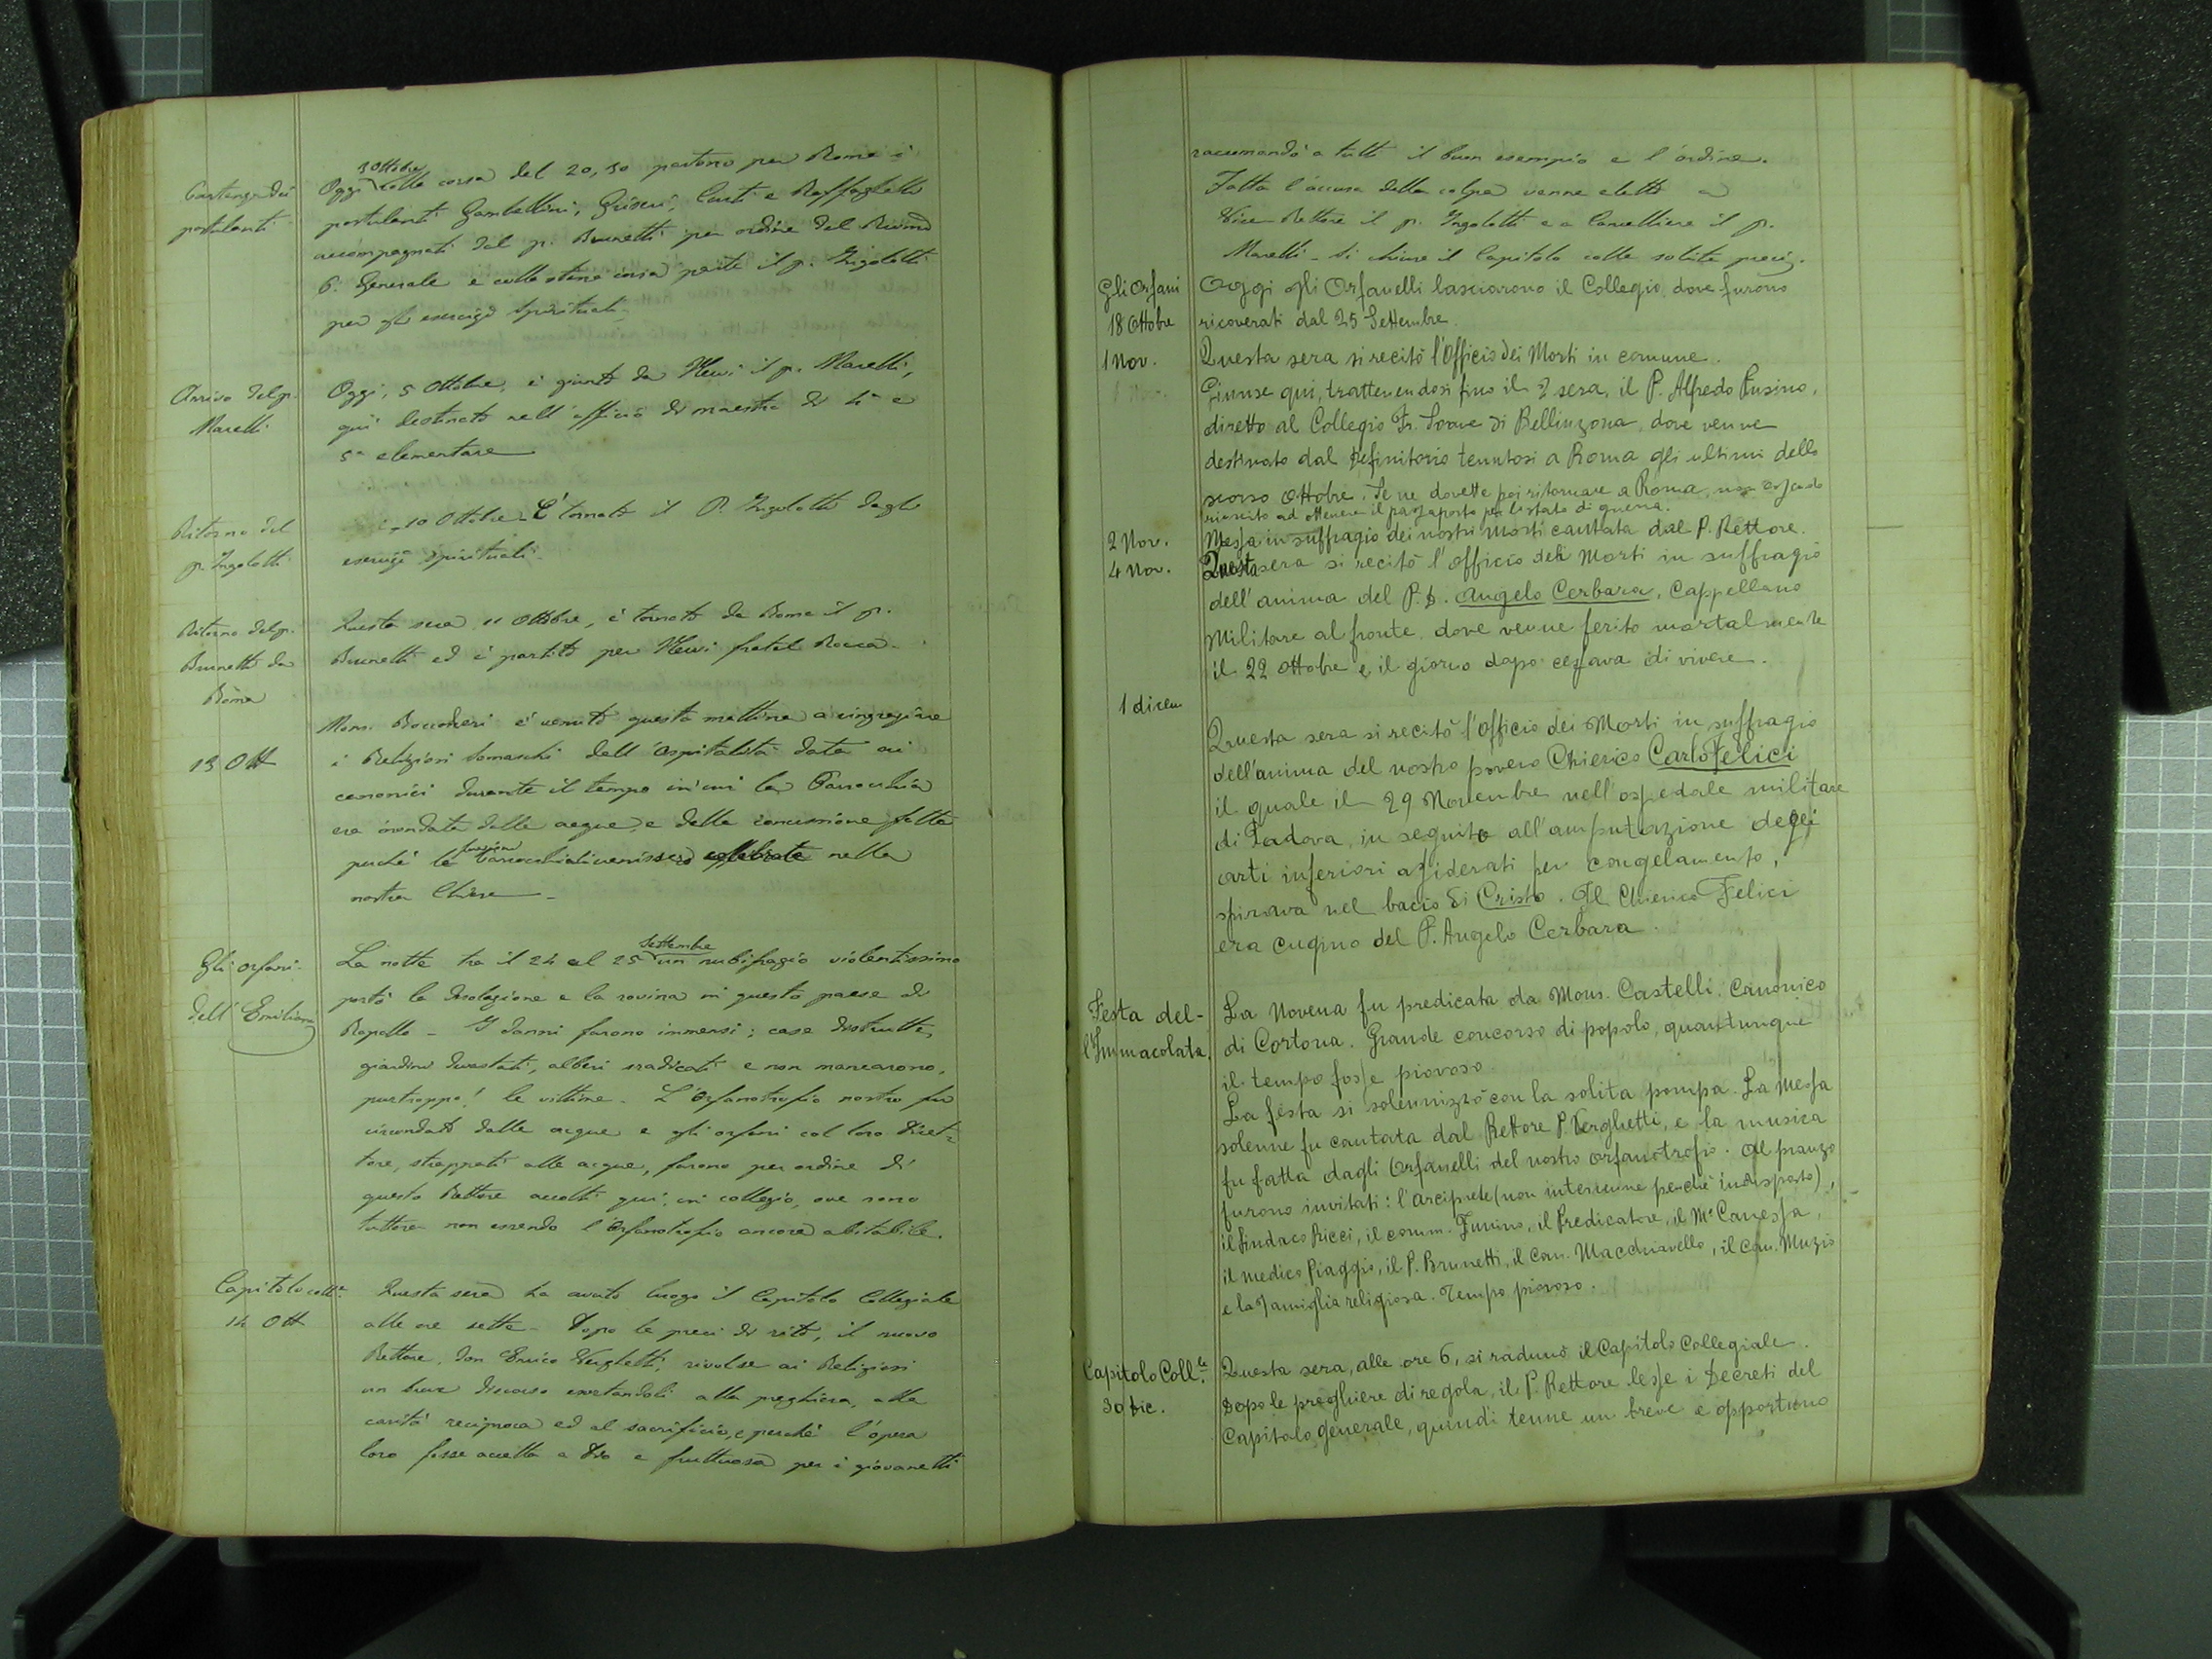 Partenza dei
postulanti
3 Ottobre
Oggi colla corsa del 20,30 partono per Roma i
postulanti Gambellini, Griseri, Curti e Raffaghelli
accompagnati dal p. Brunetti per ordine del Rev.mo
P. Generale e colla stessa corsa parte il p. Ingolotti
per gli esercizi spirituali.
Arrivo del p.
Marelli
Oggi, 5 Ottobre, è giunto da Nervi il p. Marelli,
qui destinato nell'ufficio di maestro di 4ª e
5ª elementare
Ritorno del
p. Ingolotti
10 Ottobre - È tornato il P. Ingolotti dagli
esercizi spirituali.
Ritorno del p.
Brunetti da
Roma
Questa sera 11 Ottobre, è tornato da Roma il p.
Brunetti ed è partito per Nervi fratel Rocca.
13 Ott
Mons. Boccoleri è venuto questa mattina a ringraziare
i Religiosi Somaschi dell'ospitalità data ai
canonici durante il tempo in cui la Parrocchia
era inondata dalle acque, e della concessione fatta
perché le funzioni parrocchiali venissero celebrate nella
nostra Chiesa -
Gli orfani
dell'Emiliani
La notte tra il 24 al 25 Settembre un nubifragio violentissimo
portò la desolazione e la rovina in questo paese di
Rapallo - I danni furono immensi; case distrutte,
giardini devastati, alberi sradicati e non mancarono,
purtroppo! le vittime. L'Orfanotrofio nostro fu
circondato dalle acque e gli orfani col loro Diret=
tore, strappati alle acque, furono per ordine di
questo Rettore accolti qui, in collegio, ove sono
tuttora non essendo l'Orfanotrofio ancora abitabile.
Capitolo coll.e
14 Ott
Questa sera ha avuto luogo il Capitolo Collegiale
alle ore sette - Dopo le preci di rito, il nuovo
Rettore, don Enrico Verghetti, rivolse ai Religiosi
un breve discorso esortandoli alla preghiera, alla
carità reciproca ed al sacrificio, e perché l'opera
loro fosse accetta a Dio e fruttuosa per i giovanetti
raccomandò a tutti il buon esempio e l'ordine.
Fatta l'accusa della colpa venne eletto a
Vice-Rettore il p. Ingolotti e a Cancelliere il p.
Marelli - Si chiuse il Capitolo colle solite preci.
Gli Orfani
18 Ottobre
Oggi gli Orfanelli lasciarono il Collegio, dove furono
ricoverati dal 25 Settembre.
1 Nov.
Questa sera si recitò l'Officio dei Morti in comune.
Giunse qui, trattenendosi fino il 2 sera, il P. Alfredo Pusino,
diretto al Collegio Fr. Soave di Bellinzona, dove venne
destinato dal Definitorio tenutosi a Roma gli ultimi dello
scorso Ottobre. Se ne dovette poi ritornare a Roma, non essendo
riuscito ad ottenere il passaporto per lo stato di guerra.
2 Nov.
Messa in suffragio dei nostri morti cantata dal P. Rettore.
4 Nov.
Questa sera si recitò l'officio dei Morti in suffragio
dell'anima del P. D. Angelo Cerbara, Cappellano
Militare al fronte, dove venne ferito mortalmente
il 22 Ottobre e il giorno dopo cessava di vivere.
1 dicem
Questa sera si recitò l'Officio dei Morti in suffragio
dell'anima del nostro povero Chierico Carlo Felici
il quale il 29 Novembre nell'ospedale militare
di Padova, in seguito all'amputazione degli
arti inferiori assiderati per congelamento,
spirava nel bacio di Cristo. Il Chierico Felici
era cugino del P. Angelo Cerbara.
Festa del-
l'Immacolata.
La Novena fu predicata da Mons. Castelli, Canonico
di Cortona. Grande concorso di popolo, quantunque
il tempo fosse piovoso.
La festa si solennizzò con la solita pompa. La Messa
solenne fu cantata dal Rettore P. Verghetti, e la musica
fu fatta dagli Orfanelli del nostro orfanotrofio. Al pranzo
furono invitati: l'arciprete (non intervenne perché indisposto),
il Sindaco Ricci, il comm. Funino, il Predicatore, il M° Canessa,
il medico Piaggio, il P. Brunetti, il Can. Macchiavello, il Can. Muzio
e la famiglia religiosa. Tempo piovoso.
Capitolo Coll.le
30 Dic.
Questa sera, alle ore 6, si radunò il Capitolo Collegiale.
Dopo le preghiere di regola, il P. Rettore lesse i Decreti del
Capitolo generale, quindi tenne un breve e opportuno